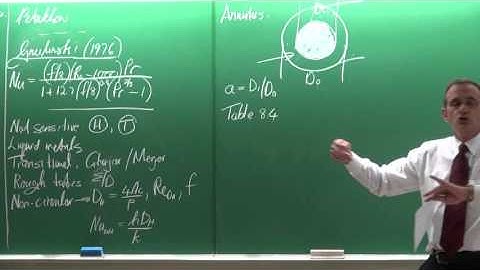 Petukhov
Gnielinski (1976)
Nu = (f/8)(Re-1000)Pr
1+12.7(f/8)^½(Pr^⅔-1)
Not sensitive (H), (T)
Liquid metals
Transitional
Rough tubes ε/D
Non-circular → D_H = 4Ac/P, Re_DH, f
= hD_H/k
Annulus.
Di
Do
a = Di/Do
Table 8.4